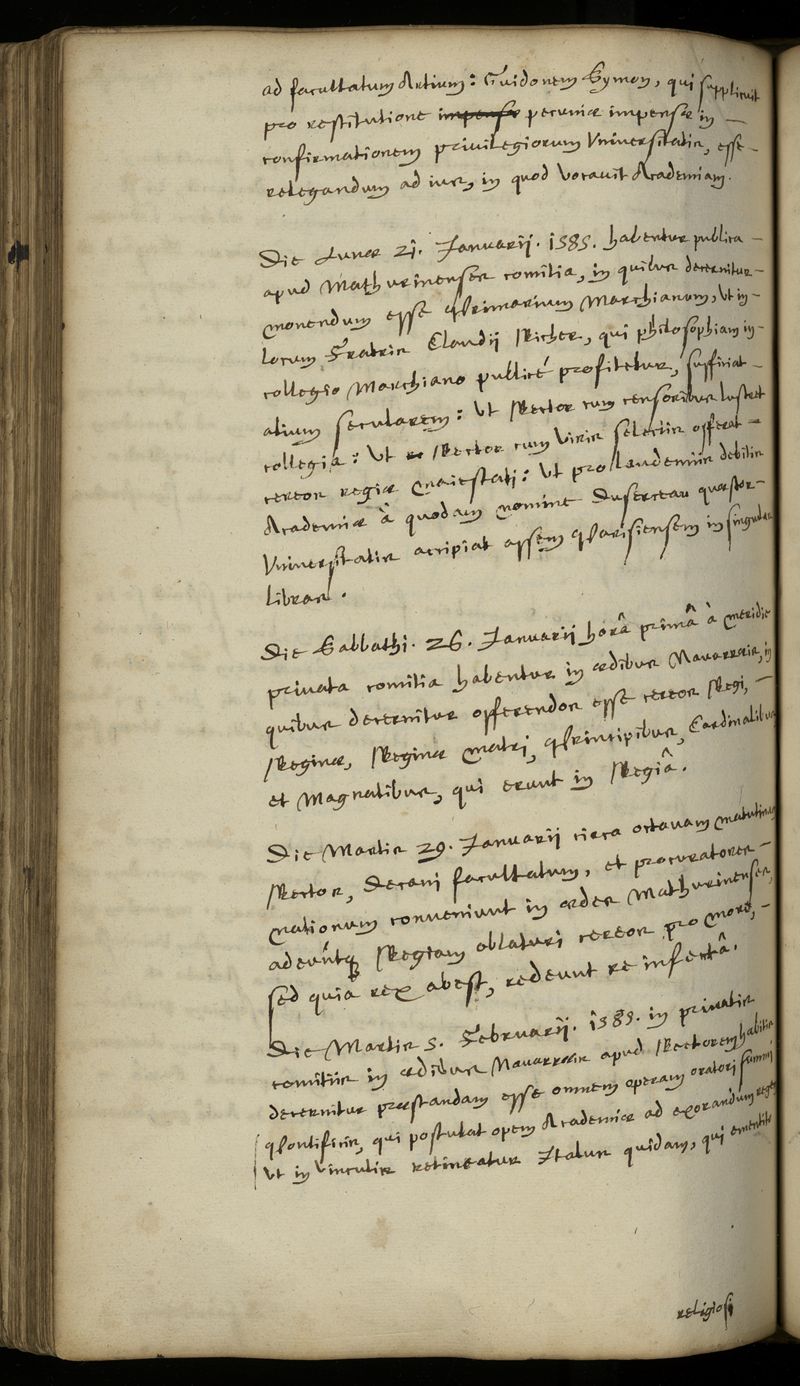 ad facultatum Artium: Guidonem Symon, qui supplicuit
pro restitutione impensæ pecuniæ impensæ in —
confirmationem privilegiorum Vniversitatis, esse -
relegandum ad iura, in quod vocavit Academiam.
Die Lunæ 21. Januarij. 1585. habentur publica -
apud Mathurinenses comitia, in quibus decernitur -
monendum esse Primarium Marchianum, Vt in -
locum Fratris Claudij Richer, qui philosophiam in -
collegio Marchiano publicè profitetur, sufficiat -
alium secularem: Vt Rector cum censoribus lustret
collegia: Vt Rector cum Viris selectis offerat -
cereos regiæ Maiestati: Vt pro laudemiis debitis
Academiæ à quodam nomine Dusereau quæstor -
Vniversitatis accipiat assem Parisiensem in singulas
libras.
Die Sabbathi. 26. Januarij horâ primâ à meridie
privata comitia habentur in ædibus Navarræis, in
quibus decernitur offerendos esse cereos Regi, —
Reginæ, Reginæ Matri, Principibus, Cardinalibus
et Magnatibus, qui erunt in Regiâ.
Die Martis 29. Januarij circa octavam matutinam
Rector, Decani facultatum, et procuratores -
nationum conveniunt in ædes Mathurinenses,
adeuntq Regiam oblaturi cereos pro more, -
sed quia rex abest, redeunt re infectâ.
Die Martis 5. Februarij. 1585. in privatis
comitiis in ædibus Navarræis apud Rectorem habitis
decernitur præstandam esse omnem operam oratori summi
Pontificis, qui postulat opem Academiæ ad exorandum regem
Vt in Vinculis retineatur Italus quidam, qui ementito
religiosi